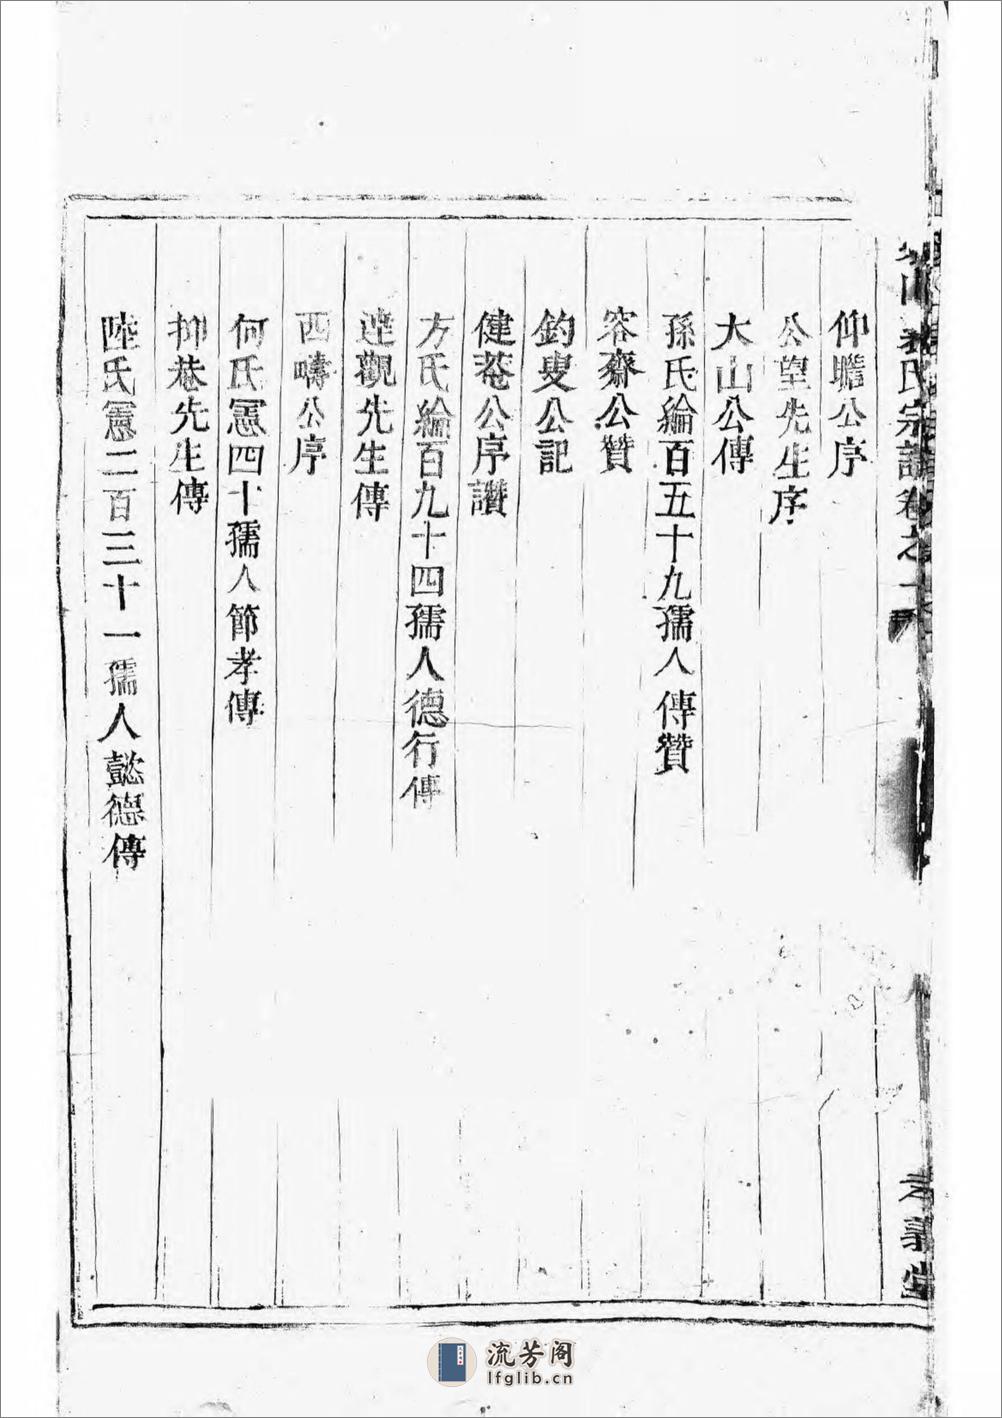 氏宗譜卷之
仰瞻公序
公望先生序
大山公傳
孫氏綸百五十九孺人傳贊
容齋公贊
釣叟公記
健菴公序讚
方氏綸百九十四孺人德行傳
達觀先生傳
西疇公序
何氏憲四十孺人節孝傳
抑巷先生傳
陸氏憲二百三十一孺人懿德傳
孝義堂
流芳阁
lfglib.cn